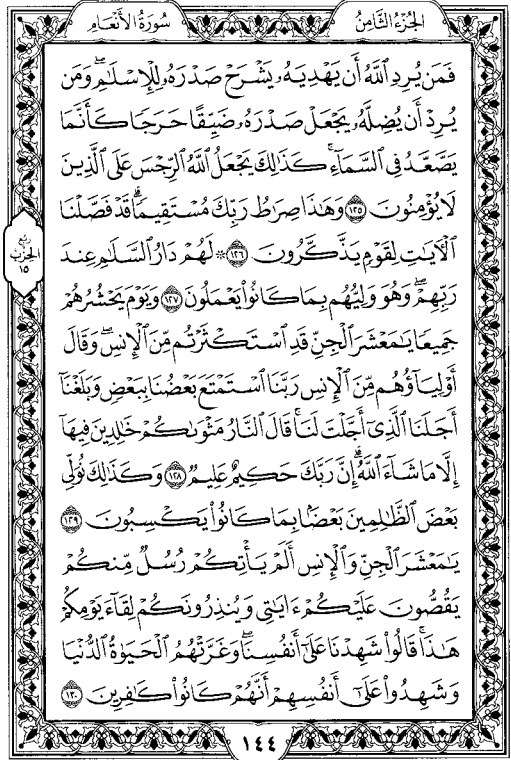 سُورَةُ الأَنْعَامِ
الجُزْءُ الثَّامِنُ
فَمَن يُرِدِ ٱللَّهُ أَن يَهْدِيَهُۥ يَشْرَحْ صَدْرَهُۥ لِلْإِسْلَٰمِ ۖ وَمَن
يُرِدْ أَن يُضِلَّهُۥ يَجْعَلْ صَدْرَهُۥ ضَيِّقًا حَرَجًا كَأَنَّمَا
يَصَّعَّدُ فِى ٱلسَّمَآءِ ۚ كَذَٰلِكَ يَجْعَلُ ٱللَّهُ ٱلرِّجْسَ عَلَى ٱلَّذِينَ
لَا يُؤْمِنُونَ ١٢٥ وَهَٰذَا صِرَٰطُ رَبِّكَ مُسْتَقِيمًا ۗ قَدْ فَصَّلْنَا
ٱلْءَايَٰتِ لِقَوْمٍ يَذَّكَّرُونَ ١٢٦ ۞ لَهُمْ دَارُ ٱلسَّلَٰمِ عِندَ
رَبِّهِمْ ۖ وَهُوَ وَلِيُّهُم بِمَا كَانُوا۟ يَعْمَلُونَ ١٢٧ وَيَوْمَ يَحْشُرُهُمْ
جَمِيعًا يَٰمَعْشَرَ ٱلْجِنِّ قَدِ ٱسْتَكْثَرْتُم مِّنَ ٱلْإِنسِ ۖ وَقَالَ
أَوْلِيَآؤُهُم مِّنَ ٱلْإِنسِ رَبَّنَا ٱسْتَمْتَعَ بَعْضُنَا بِبَعْضٍ وَبَلَغْنَآ
أَجَلَنَا ٱلَّذِىٓ أَجَّلْتَ لَنَا ۚ قَالَ ٱلنَّارُ مَثْوَىٰكُمْ خَٰلِدِينَ فِيهَآ
إِلَّا مَا شَآءَ ٱللَّهُ ۗ إِنَّ رَبَّكَ حَكِيمٌ عَلِيمٌ ١٢٨ وَكَذَٰلِكَ نُوَلِّى
بَعْضَ ٱلظَّٰلِمِينَ بَعْضًۢا بِمَا كَانُوا۟ يَكْسِبُونَ ١٢٩
يَٰمَعْشَرَ ٱلْجِنِّ وَٱلْإِنسِ أَلَمْ يَأْتِكُمْ رُسُلٌ مِّنكُمْ
يَقُصُّونَ عَلَيْكُمْ ءَايَٰتِى وَيُنذِرُونَكُمْ لِقَآءَ يَوْمِكُمْ
هَٰذَا ۚ قَالُوا۟ شَهِدْنَا عَلَىٰٓ أَنفُسِنَا ۖ وَغَرَّتْهُمُ ٱلْحَيَوٰةُ ٱلدُّنْيَا
وَشَهِدُوا۟ عَلَىٰٓ أَنفُسِهِمْ أَنَّهُمْ كَانُوا۟ كَٰفِرِينَ ١٣٠
ربع
الحزب
١٥
١٤٤